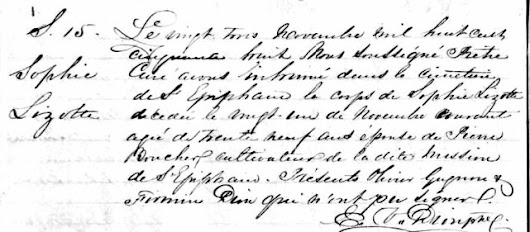 S. 15.
Sophie
Lizotte
Le vingt trois Novembre mil huit cent
cinquante huit, Nous Soussigné Prêtre
Curé avons inhumé dans le cimetière
de St Epiphane le corps de Sophie Lizotte
décédée le vingt-un de Novembre courant
agée de trente neuf ans épouse de Pierre
Boucher cultivateur de la dite mission
de St Epiphane. Présents Olivier Gagnon &
Firmin Dion qui n'ont pu signer.